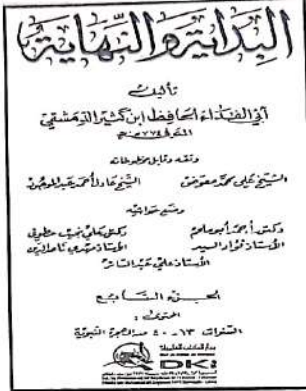 البداية والنهاية
تأليف
أبي الفداء الحافظ ابن كثير الدمشقي
المتوفى ٧٧٤ هـ
وثقه وقابل مخطوطاته
الشيخ علي محمد معوض الشيخ عادل أحمد عبد الموجود
وضع حواشيه
دكتور أحمد أبو ملحم دكتور علي نجيب عطوي
الأستاذ فؤاد السيد الأستاذ مهدي ناصر الدين
الأستاذ علي عبد الساتر
الجزء السابع
المحتوى:
السنوات ١٣ - ٤٠ من الهجرة النبوية
دار الكتب العلمية
DKi